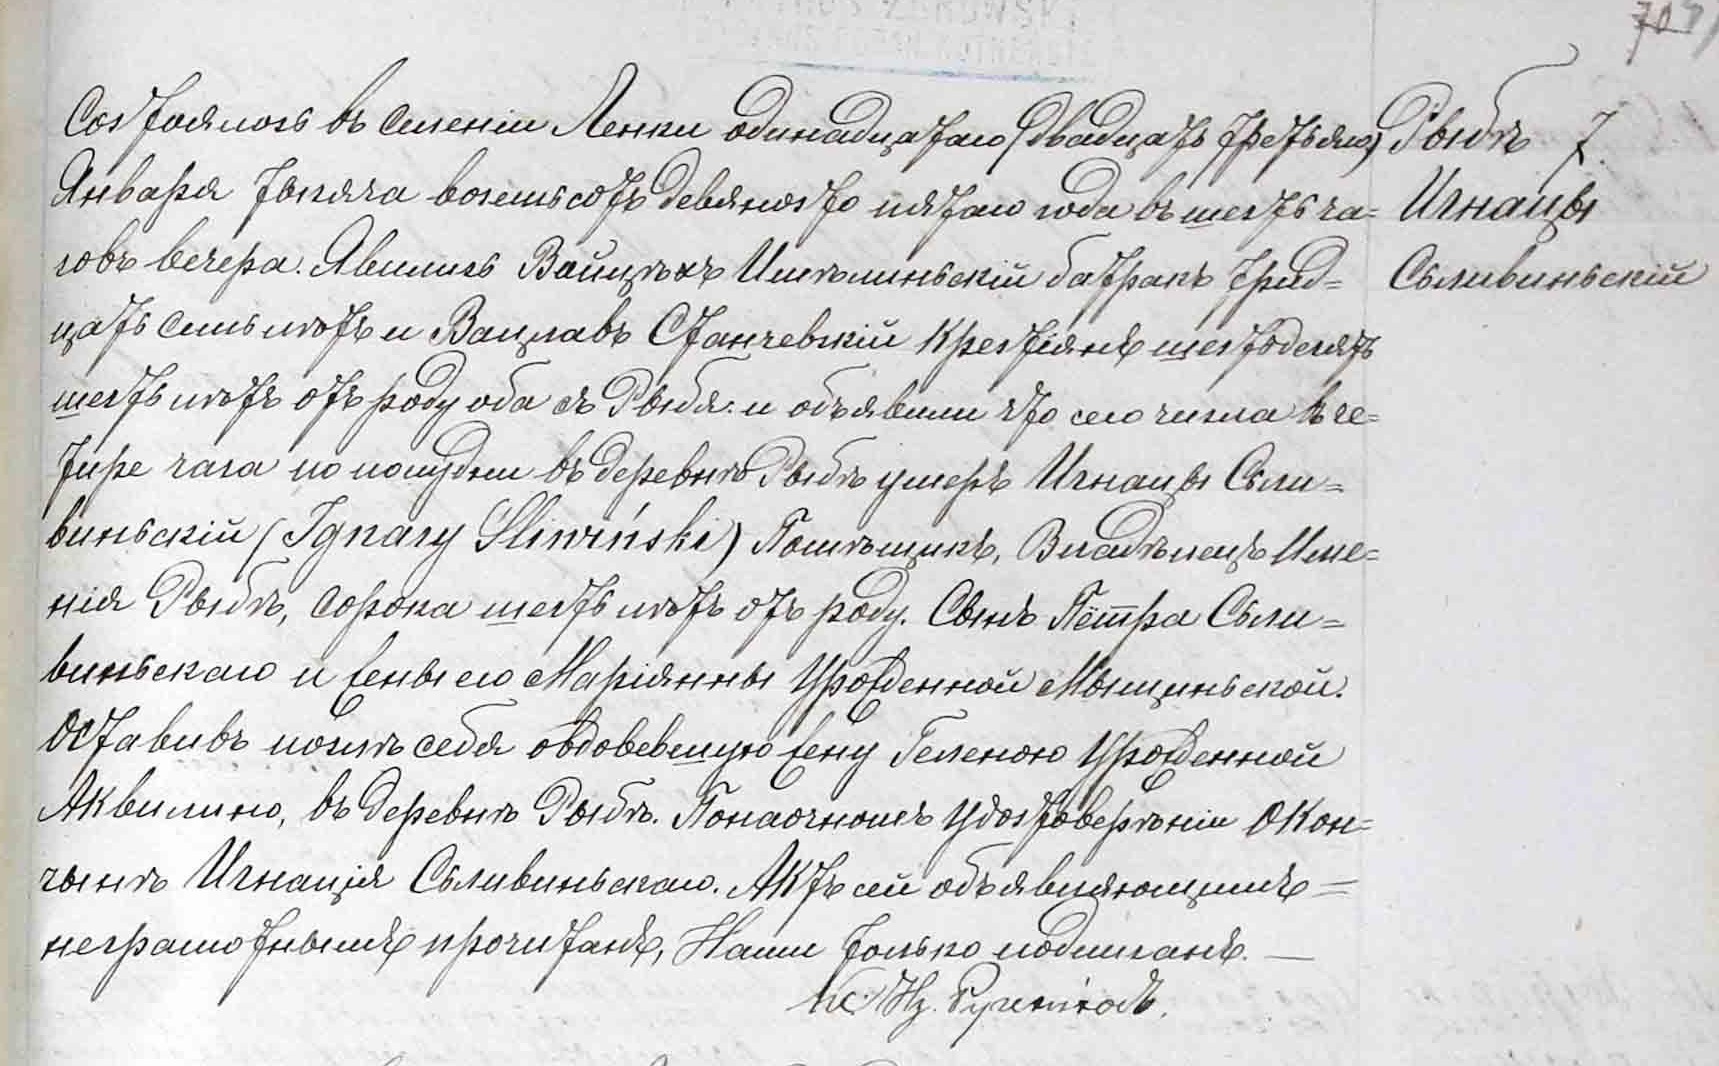 Состоялось въ селеніи Ленки одинадцатаго (двадцать третьяго)
Января тысяча восемьсотъ девяносто пятаго года въ шесть ча=
совъ вечера. Явились Войцѣхъ батракъ трид=
цать семь лѣтъ и Вацлавъ Станчевскій крестіянѣ шестьдесятъ
шесть лѣтъ отъ роду оба съ Рыбя. и объявили что сего числа въ че=
тире часа по полудни въ деревнѣ Рыбѣ умеръ Игнацы Сьли=
виньскій (Ignacy Śliwiński) Помѣщикъ, Владѣлецъ Име=
нія Рыбѣ, сорока шесть лѣтъ отъ роду. Сынъ Пётра Сьли=
виньскаго и жены его Маріянны урожденной Мыщиньской.
Оставивъ послѣ себя овдовевшую жену Геленою урожденной
Аквилино, въ деревнѣ Рыбѣ. По наочномъ удостоверѣніи о кон=
чынѣ Игнація Сьливиньскаго. Актъ сей объявляющимъ =
неграмотнымъ прочитанъ, Нами только подписанъ. —
Кс. Нз.
Рыбѣ 7.
Игнацы
Сьливиньскій